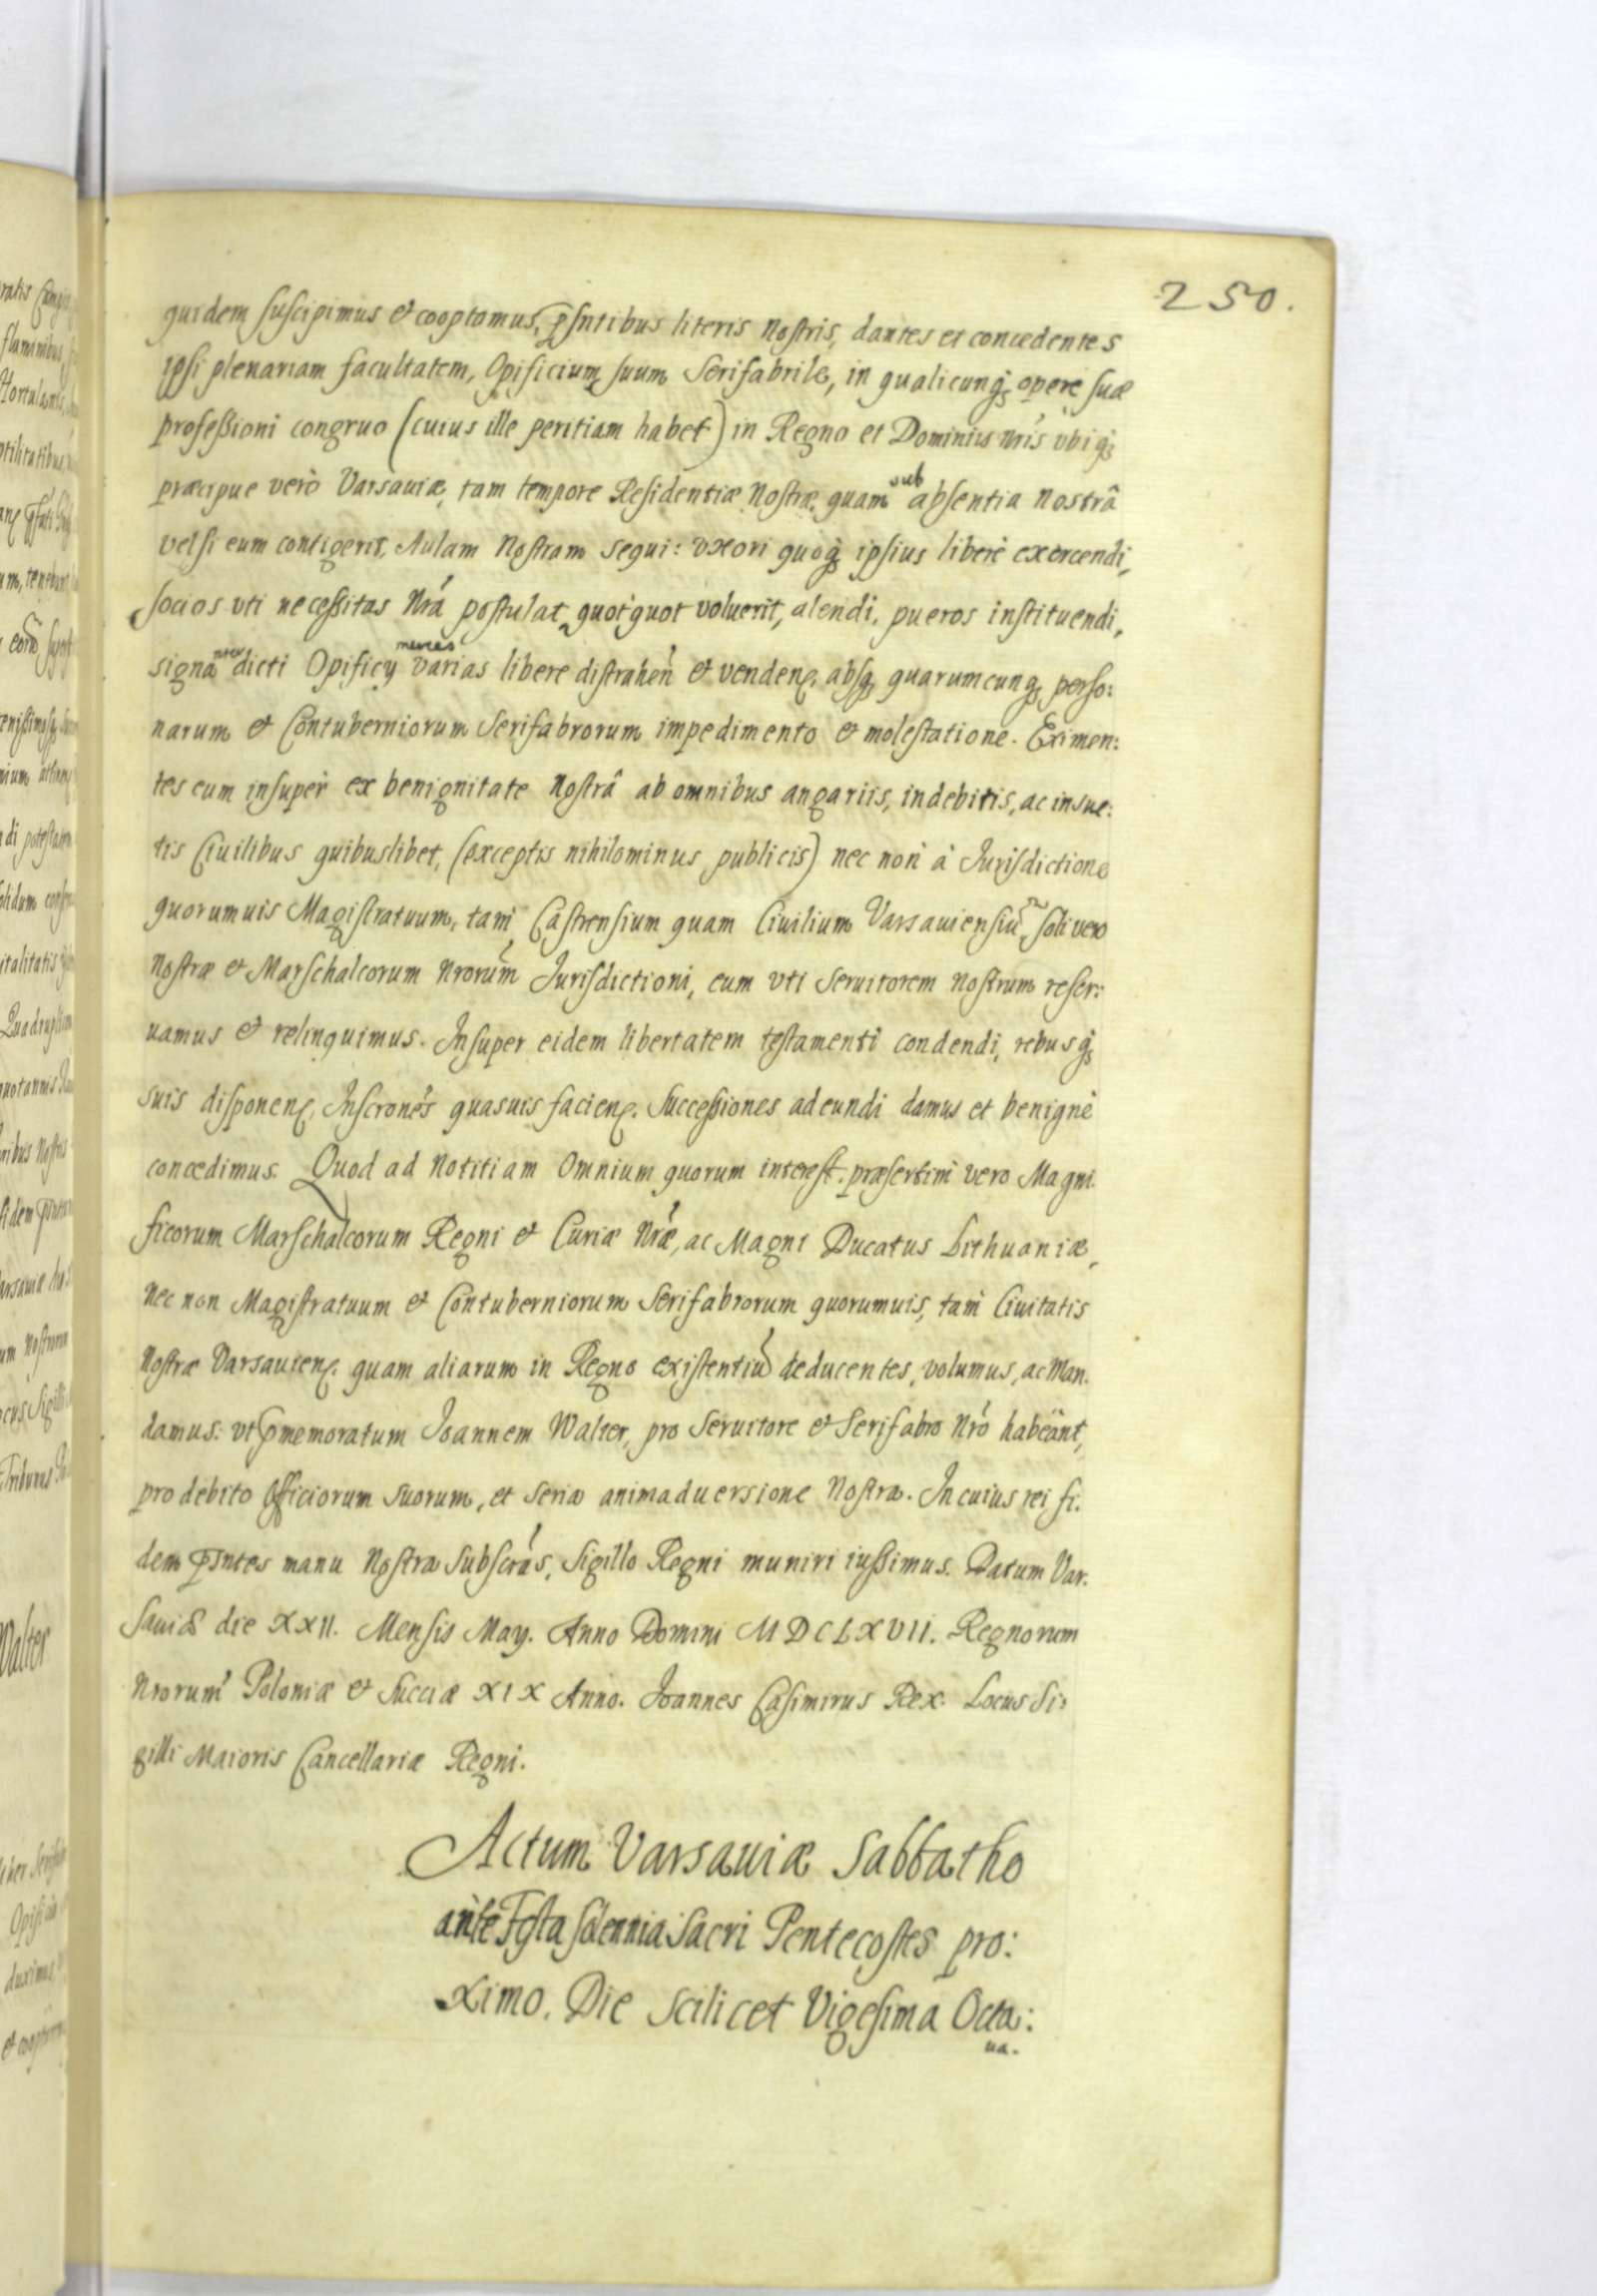 250.
quidem suscipimus et cooptamus, p̱sntibus literis Nostris, dantes et concedentes
ipsi plenariam facultatem, Opificium suum Serifabrile, in qualicunq; opere suæ
professioni congruo (cuius ille peritiam habet) in Regno et Dominiis nris vbiq;
præcipue verò Varsauiæ, tam tempore Residentiæ Nostræ, quam sub absentia nostrâ
vel si eum contigerit, Aulam Nostram sequi: vxori quoq; ipsius liberè exercendi,
socios vti necessitas Nra postulat, quotquot voluerit, alendi, pueros instituendi,
signanter dicti Opificy merces varias libere distrahen et venden. absq; quarumcunq; perso:
narum et Contuberniorum Serifabrorum impedimento et molestatione. Eximen:
tes eum insuper ex benignitate Nostrâ ab omnibus angariis, indebitis, ac insue:
tis Ciuilibus quibuslibet, (exceptis nihilominus publicis) nec non à Jurisdictione
quorumuis Magistratuum, tam Castrensium quam Ciuilium Varsauiensiũ, soli vero
Nostræ et Marschalcorum Nrorum Jurisdictioni, eum vti Seruitorem Nostrum reser:
uamus et relinquimus. Insuper eidem libertatem testamenti condendi, rebusq;
suis disponen. Inscrones quasuis facien. Successiones adeundi damus et benignè
concedimus. Quod ad Notitiam Omnium quorum interest. præsertim vero Magni.
ficorum Marschalcorum Regni et Curiæ Nræ, ac Magni Ducatus Lithuaniæ,
Nec non Magistratuum et Contuberniorum Serifabrorum quorumuis, tam Ciuitatis
Nostræ Varsauien. quam aliarum in Regno existentiũ deducentes, volumus, ac Man.
damus: vt p̱memoratum Joannem Walter, pro Seruitore et Serifabro Nro habeant,
pro debito Officiorum suorum, et seria animaduersione Nostra. In cuius rei fi.
dem p̱sntes manu Nostra subscras, Sigillo Regni muniri iussimus. Datum Var.
sauiæ die XXII. Mensis May. Anno Domini MDCLXVII. Regnorum
Nrorum Poloniæ et Sueciæ XIX Anno. Joannes Casimirus Rex. Locus Si:
gilli Maioris Cancellariæ Regni.
Actum Varsauiæ Sabbatho
ante Festa Solennia Sacri Pentecostes pro:
ximo. Die scilicet Vigesima Octa:
ua.